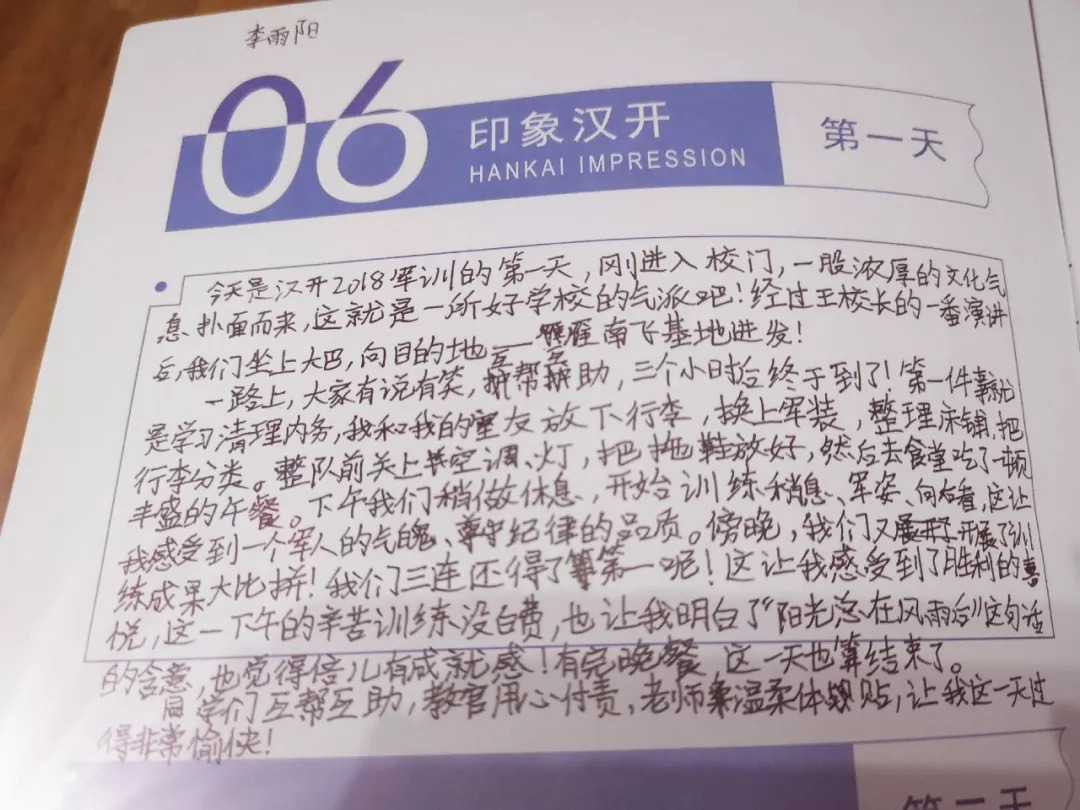 李雨阳
06
印象汉开
HANKAI IMPRESSION
第一天
今天是汉开2018军训的第一天，刚进入校门，一股浓厚的文化气
息扑面而来，这就是一所好学校的气派吧！经过王校长的一番演讲
后，我们坐上大巴，向目的地——雁南飞基地进发！
一路上，大家有说有笑，互帮互助，三个小时后终于到了！第一件事
是学习清理内务，我和我的室友放下行李，换上军装，整理床铺，把
行李分类。整队前关上空调、灯，把拖鞋放好，然后去食堂吃了一顿
丰盛的午餐。下午我们稍做休息，开始训练稍息、军姿、向右看，这让
我感受到一个军人的气魄、尊守纪律的品质。傍晚，我们又开展了训
练成果大比拼！我们三连还得了第一呢！这让我感受到了胜利的喜
悦，这一下午的辛苦训练没白费，也让我明白了“阳光总在风雨后”这句话
的含意，也觉得倍儿有成就感！有完晚餐 这一天也算结束了。
同学们互帮互助，教官用心付责，老师温柔体贴，让我这一天过
得非常愉快！
第一天